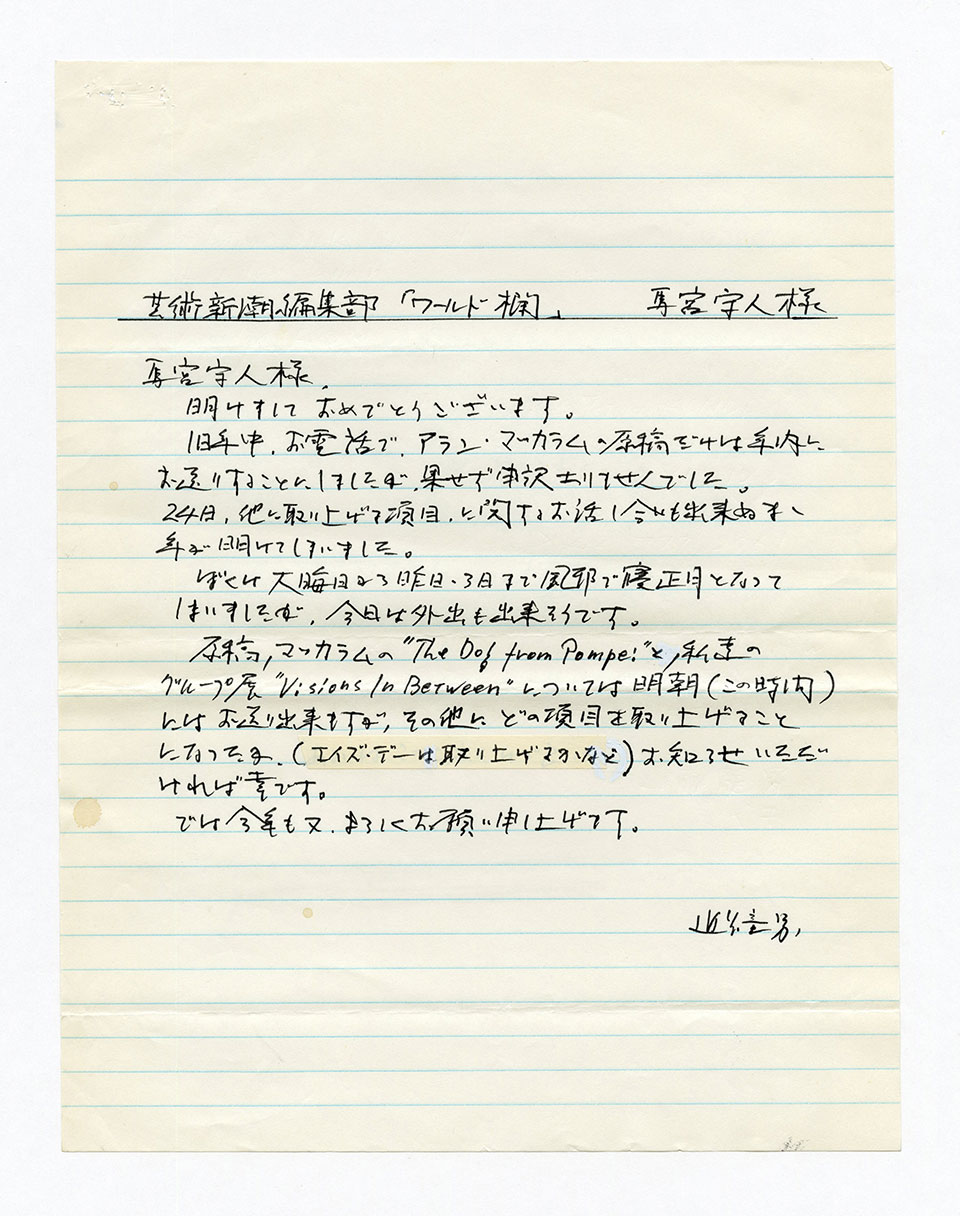 芸術新潮編集部 「ワールド欄」 馬宮守人様
馬宮守人様、
明けまして おめでとうございます。
旧年中、お電話で、アラン・マッカラムの原稿だけは年内に
お送りすることにしましたが、果せず申訳ありませんでした。
24日、他に取り上げる項目、に関するお話し合いも出来ぬまゝ
年が明けてしまいました。
ぼくは大晦日から昨日・3日まで風邪で寝正月となって
しまいましたが、今日は外出も出来そうです。
原稿、マッカラムの "The Dog from Pompei" と、私達の
グループ展 "Visions In Between" については明朝(この時間)
にはお送り出来ますが、その他に どの項目を取り上げること
になったか、(エイズ・デーは取り上げるかなど)お知らせいただ
ければ幸です。
では今年も又、よろしくお願い申し上げます。
近